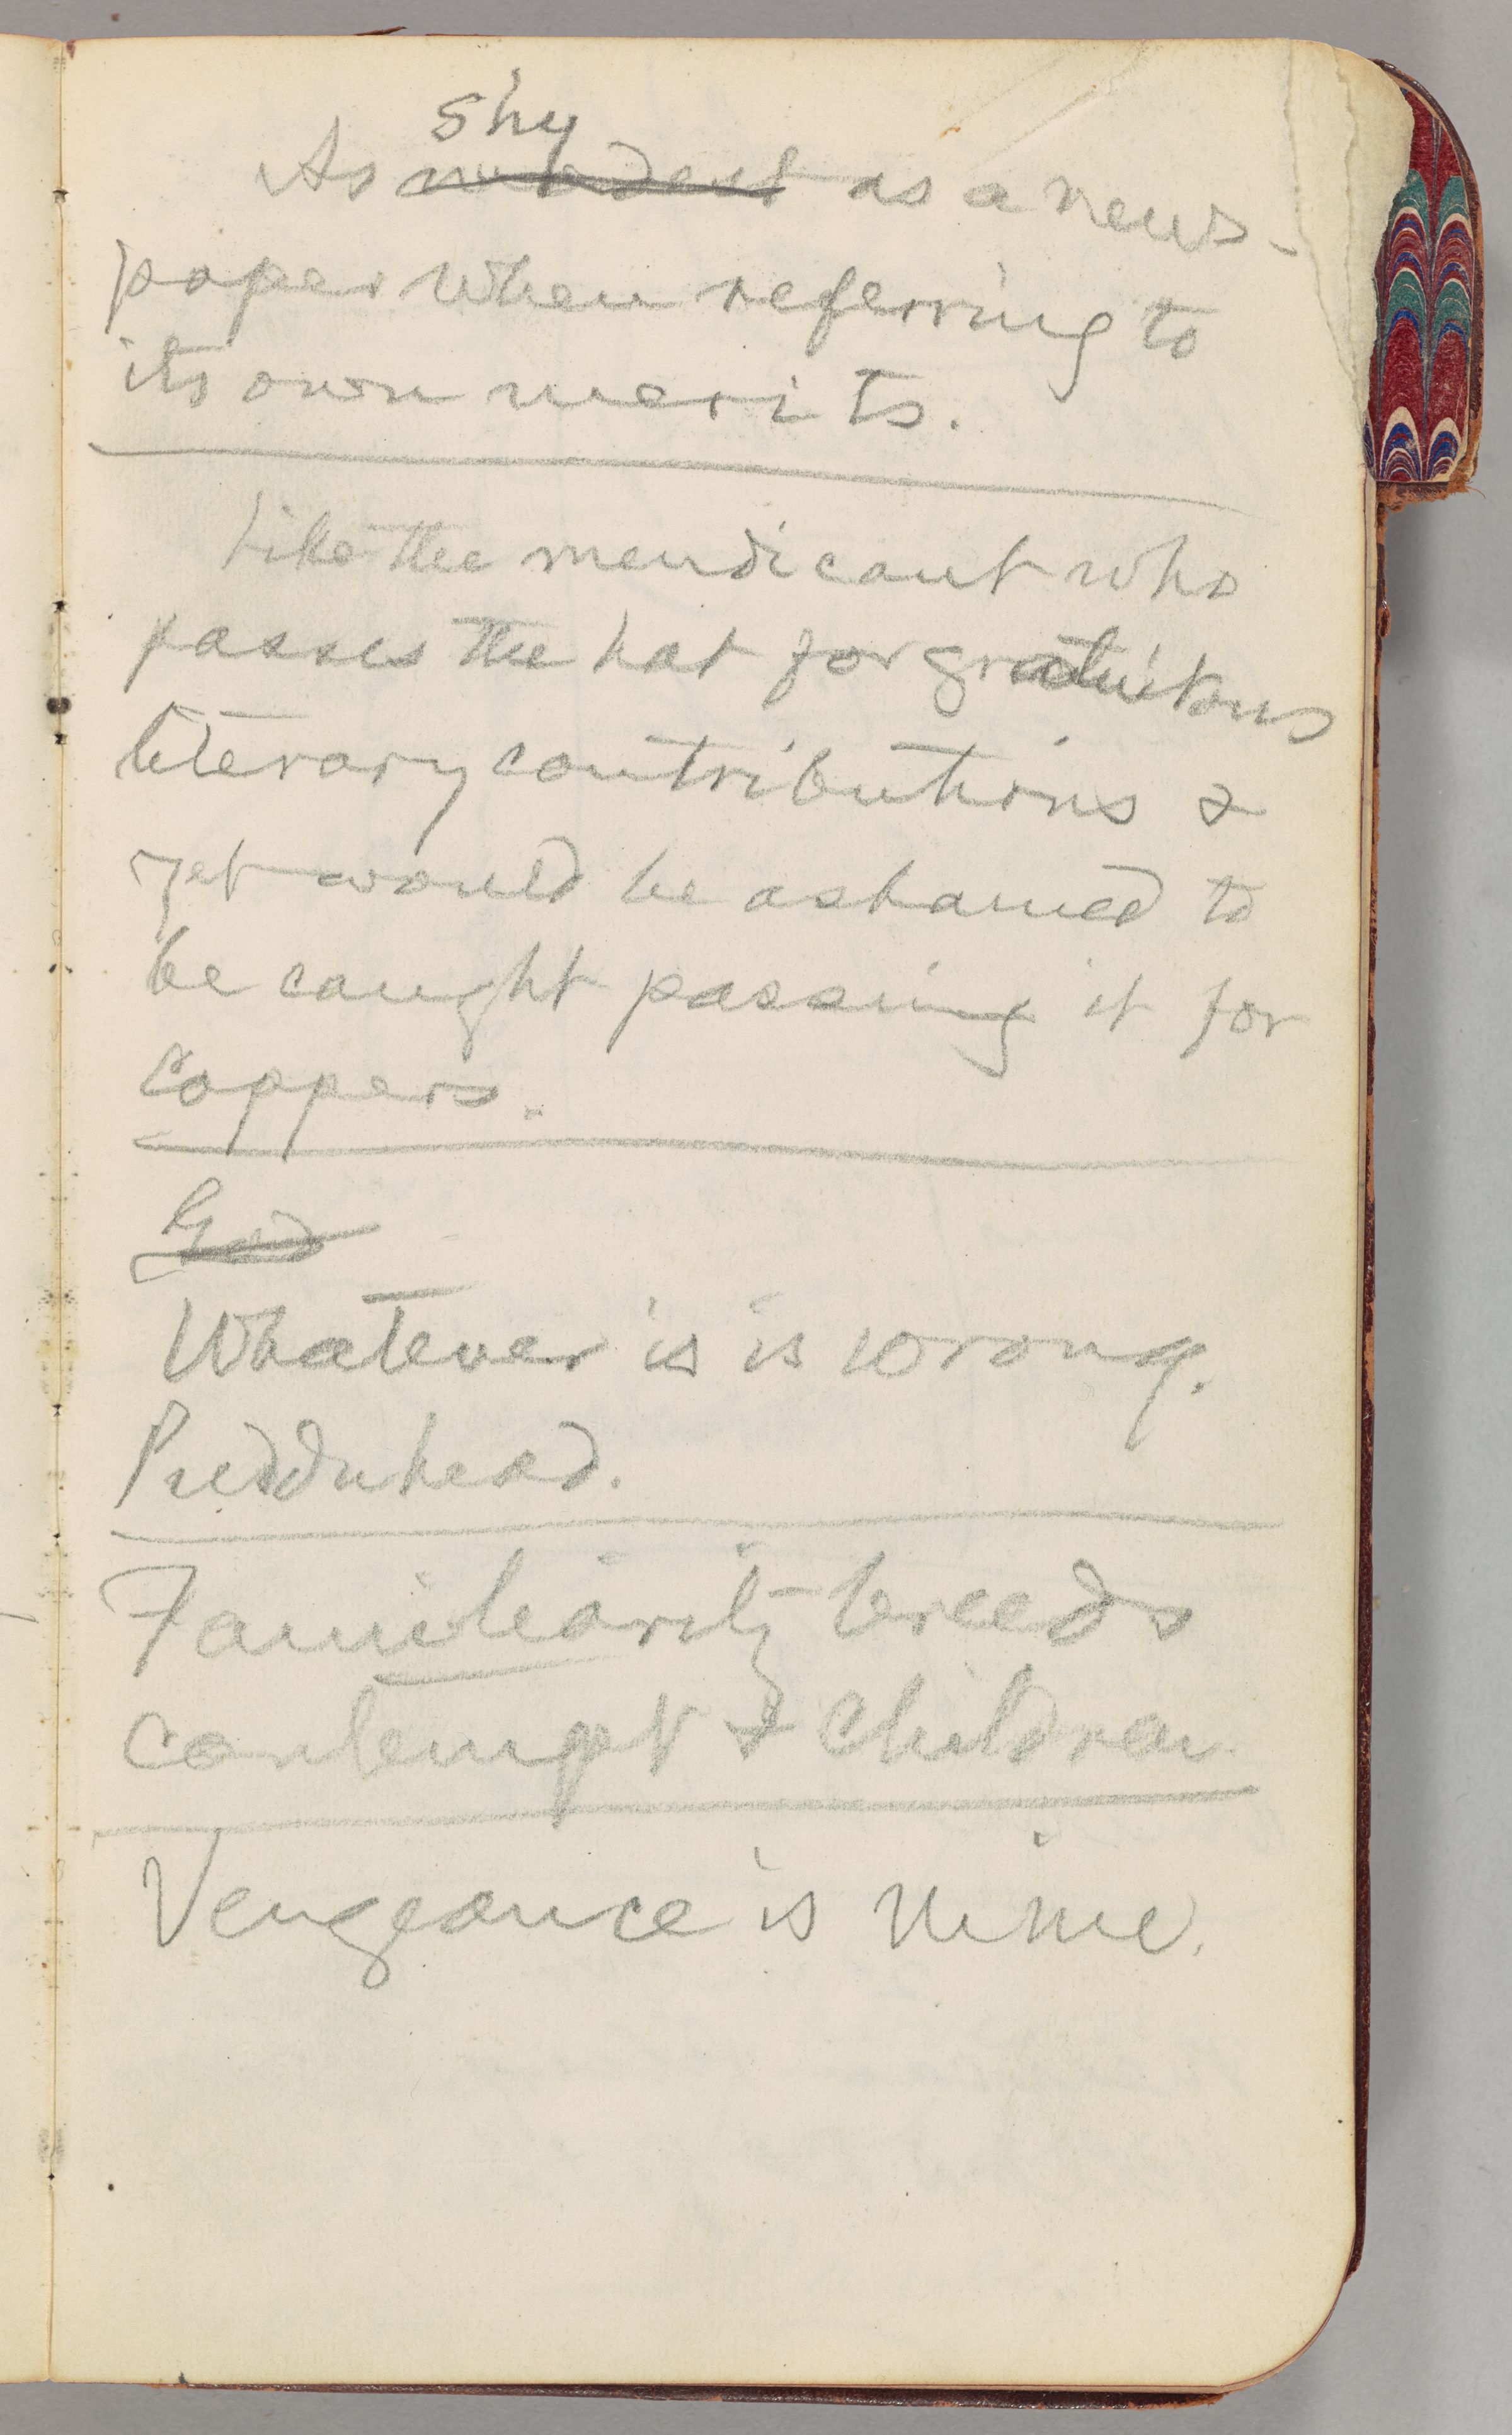 shy
As modest as a news-
paper when referring to
its own merits.
Like the mendicant who
passes the hat for gratuitous
literary contributions &
yet would be ashamed to
be caught passing it for
coppers.
God
Whatever is is wrong.
Puddnhead.
Familiarity breeds
contempt & children
Vengeance is mine.